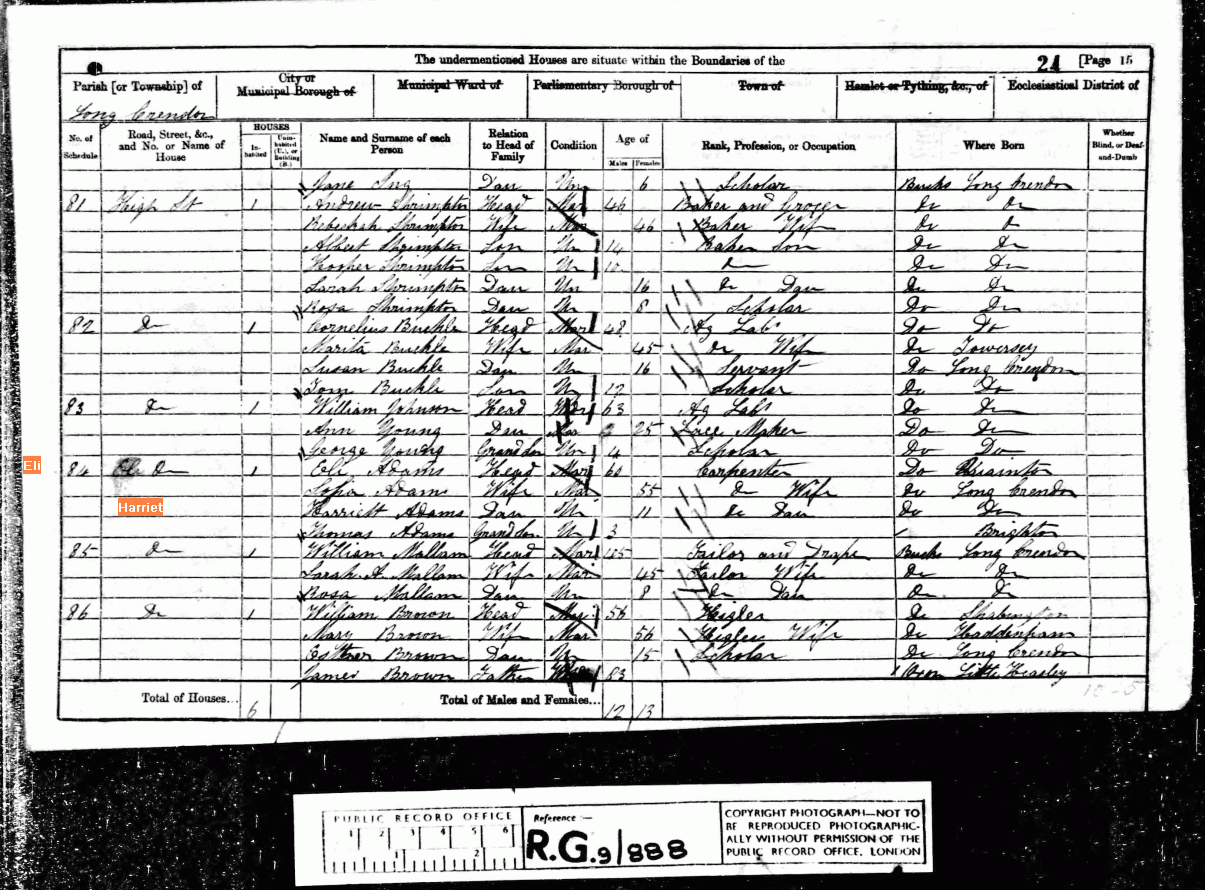 The undermentioned Houses are situate within the Boundaries of the 24 [Page 15
Parish [or Township] of City or Municipal Borough of Municipal Ward of Parliamentary Borough of Town of Hamlet or Tything, &c., of Ecclesiastical District of
Long Crendon
No. of Schedule Road, Street, &c., and No. or Name of House HOUSES Inhabited Uninhabited (U.), or Building (B.) Name and Surname of each Person Relation to Head of Family Condition Age of Males Females Rank, Profession, or Occupation Where Born Whether Blind, or Deaf-and-Dumb
Jane Ing Dau Un 6 Scholar Bucks Long Crendon
81 High St 1 Andrew Shrimpton Head Mar 46 Baker and Grocer Do Do
Rebeckah Shrimpton Wife Mar 46 Baker Wife Do Do
Albert Shrimpton Son Un 14 Baker Son Do Do
Hooper Shrimpton Son Un 10 Do Do Do
Sarah Shrimpton Dau Un 16 Do Dau Do Do
Rosa Shrimpton Dau Un 8 Scholar Do Do
82 Do 1 Cornelius Buckle Head Mar 48 Ag Lab Do Do
Buckle Wife Mar 45 Do Wife Do Towersey
Susan Buckle Dau Un 16 Servant Do Long Crendon
Tom Buckle Son Un 12 Scholar Do Do
83 Do 1 William Johnson Head 63 Ag Lab Do Do
Ann Young Dau Mar 25 Lace Maker Do Do
George Young Grandson Un 4 Scholar Do Do
Eli 84 Do 1 Eli Adams Head Mar 60 Carpenter Do Quainton
Sofia Adams Wife Mar 55 Do Wife Do Long Crendon
Harriet Harriett Adams Dau Un 11 Do Dau Do Do
Thomas Adams Grandson Un 3 Brighton
85 Do 1 William Mallam Head Mar Tailor and Drape Bucks Long Crendon
Sarah A. Mallam Wife Mar 45 Tailor Wife Do Do
Rosa Mallam Dau Un 8 Do Dau Do Do
86 Do 1 William Brown Head Mar 56 Higler Do Shabington
Mary Brown Wife Mar 56 Higler Wife Do Haddenham
Esther Brown Dau Un 15 Scholar Do Long Crendon
James Brown Father 83 Oxon Little Heasley
Total of Houses... 6 Total of Males and Females... 12 13
PUBLIC RECORD OFFICE
1 2 3 4 5 6
1 2
Reference :-
R.G. 9/888
COPYRIGHT PHOTOGRAPH—NOT TO
BE REPRODUCED PHOTOGRAPHIC-
ALLY WITHOUT PERMISSION OF THE
PUBLIC RECORD OFFICE, LONDON